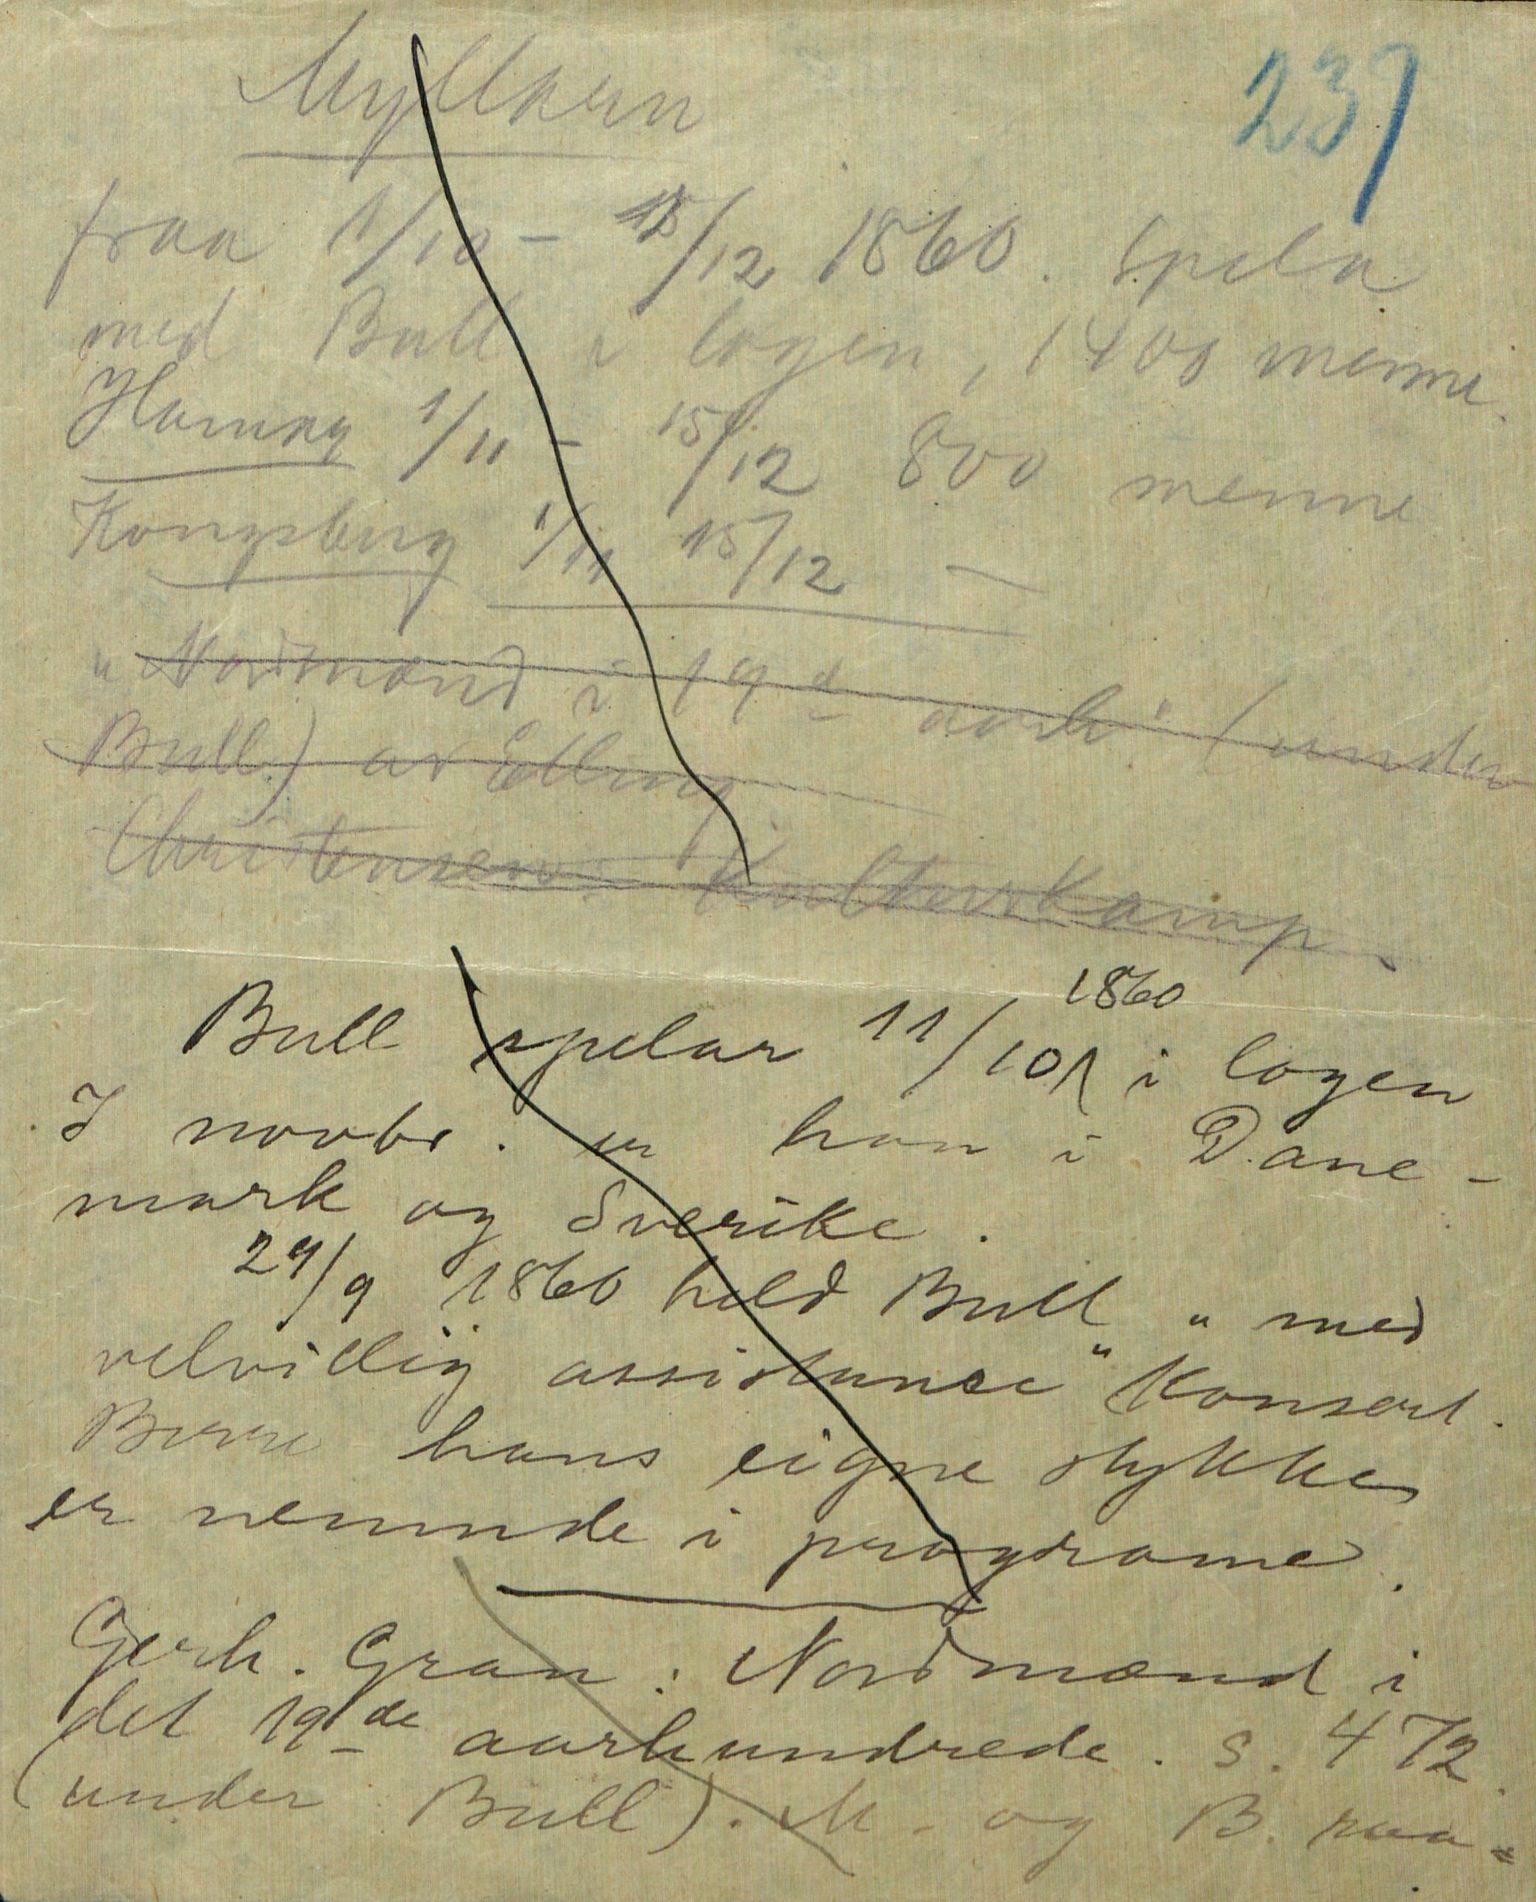 237
Myllarn
fraa 1/10 - 15/12 1860. Spela
med Bull i logen, 1400 menne.
Hamar 1/11 - 15/12 800 menne
Kongsberg 1/11 15/12 —
"Nordmænd i 19de aarh. (under
Bull) av Elling
Christensen: Kulturkamp.
Bull spelar 11/10 1860 i logen
I novbr. er han i Dane-
mark og Sverike.
29/9 1860 held Bull "med
velvillig assistance" Konsert.
Berre hans eigne stykker
er nemnde i programe.
Gerh. Gran: Nordmænd i
det 19de aarhundrede. s. 472.
(under Bull). M. og B. raa=